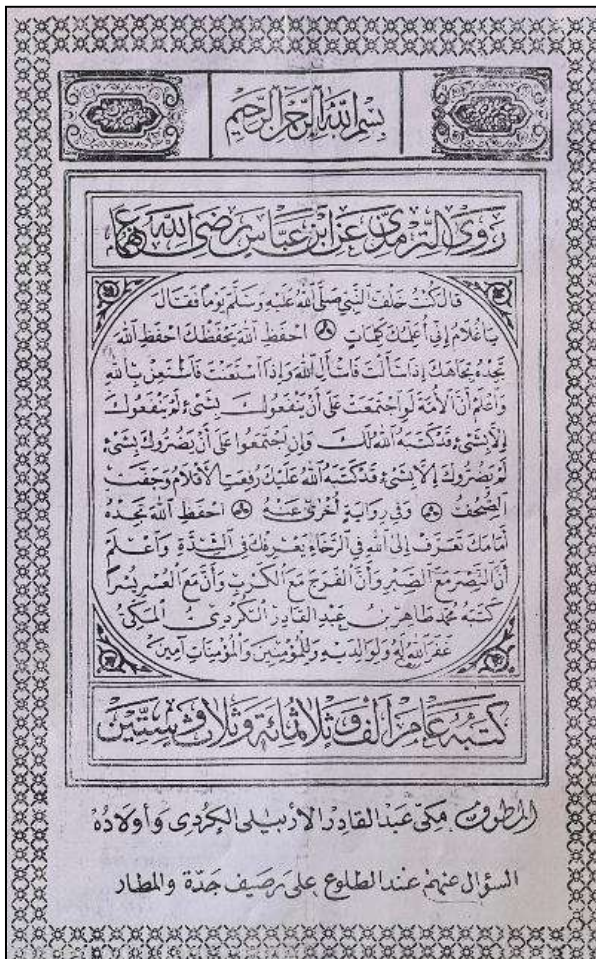 بِسْمِ اللَّهِ الرَّحْمَنِ الرَّحِيمِ
رَوَى التِّرْمِذِيُّ عَنِ ابْنِ عَبَّاسٍ رَضِيَ اللَّهُ عَنْهُمَا
قَالَ كُنْتُ خَلْفَ النَّبِيِّ صَلَّى اللَّهُ عَلَيْهِ وَسَلَّمَ يَوْمًا فَقَالَ
يَا غُلَامُ إِنِّي أُعَلِّمُكَ كَلِمَاتٍ احْفَظِ اللَّهَ يَحْفَظْكَ احْفَظِ اللَّهَ
تَجِدْهُ تِجَاهَكَ إِذَا سَأَلْتَ فَاسْأَلِ اللَّهَ وَإِذَا اسْتَعَنْتَ فَاسْتَعِنْ بِاللَّهِ
وَاعْلَمْ أَنَّ الْأُمَّةَ لَوِ اجْتَمَعَتْ عَلَى أَنْ يَنْفَعُوكَ بِشَيْءٍ لَمْ يَنْفَعُوكَ
إِلَّا بِشَيْءٍ قَدْ كَتَبَهُ اللَّهُ لَكَ وَإِنِ اجْتَمَعُوا عَلَى أَنْ يَضُرُّوكَ بِشَيْءٍ
لَمْ يَضُرُّوكَ إِلَّا بِشَيْءٍ قَدْ كَتَبَهُ اللَّهُ عَلَيْكَ رُفِعَتِ الْأَقْلَامُ وَجَفَّتِ
الصُّحُفُ وَفِي رِوَايَةٍ أُخْرَى عَنْهُ احْفَظِ اللَّهَ تَجِدْهُ
أَمَامَكَ تَعَرَّفْ إِلَى اللَّهِ فِي الرَّخَاءِ يَعْرِفْكَ فِي الشِّدَّةِ وَاعْلَمْ
أَنَّ النَّصْرَ مَعَ الصَّبْرِ وَأَنَّ الْفَرَجَ مَعَ الْكَرْبِ وَأَنَّ مَعَ الْعُسْرِ يُسْرًا
كَتَبَهُ مُحَمَّد طَاهِر بْن عَبْدِ الْقَادِرِ الْكُرْدِيُّ الْمَكِّيُّ
غَفَرَ اللَّهُ لَهُ وَلِوَالِدَيْهِ وَلِلْمُؤْمِنِينَ وَالْمُؤْمِنَاتِ آمِين
كَتَبَهُ عَامَ أَلْفٍ وَثَلَاثِمِائَةٍ وَثَلَاثٍ وَسِتِّينَ
المطوف مكي عبد القادر الأربيلي الكردي وأولاده
السؤال عنهم عند الطلوع على رصيف جدة والمطار